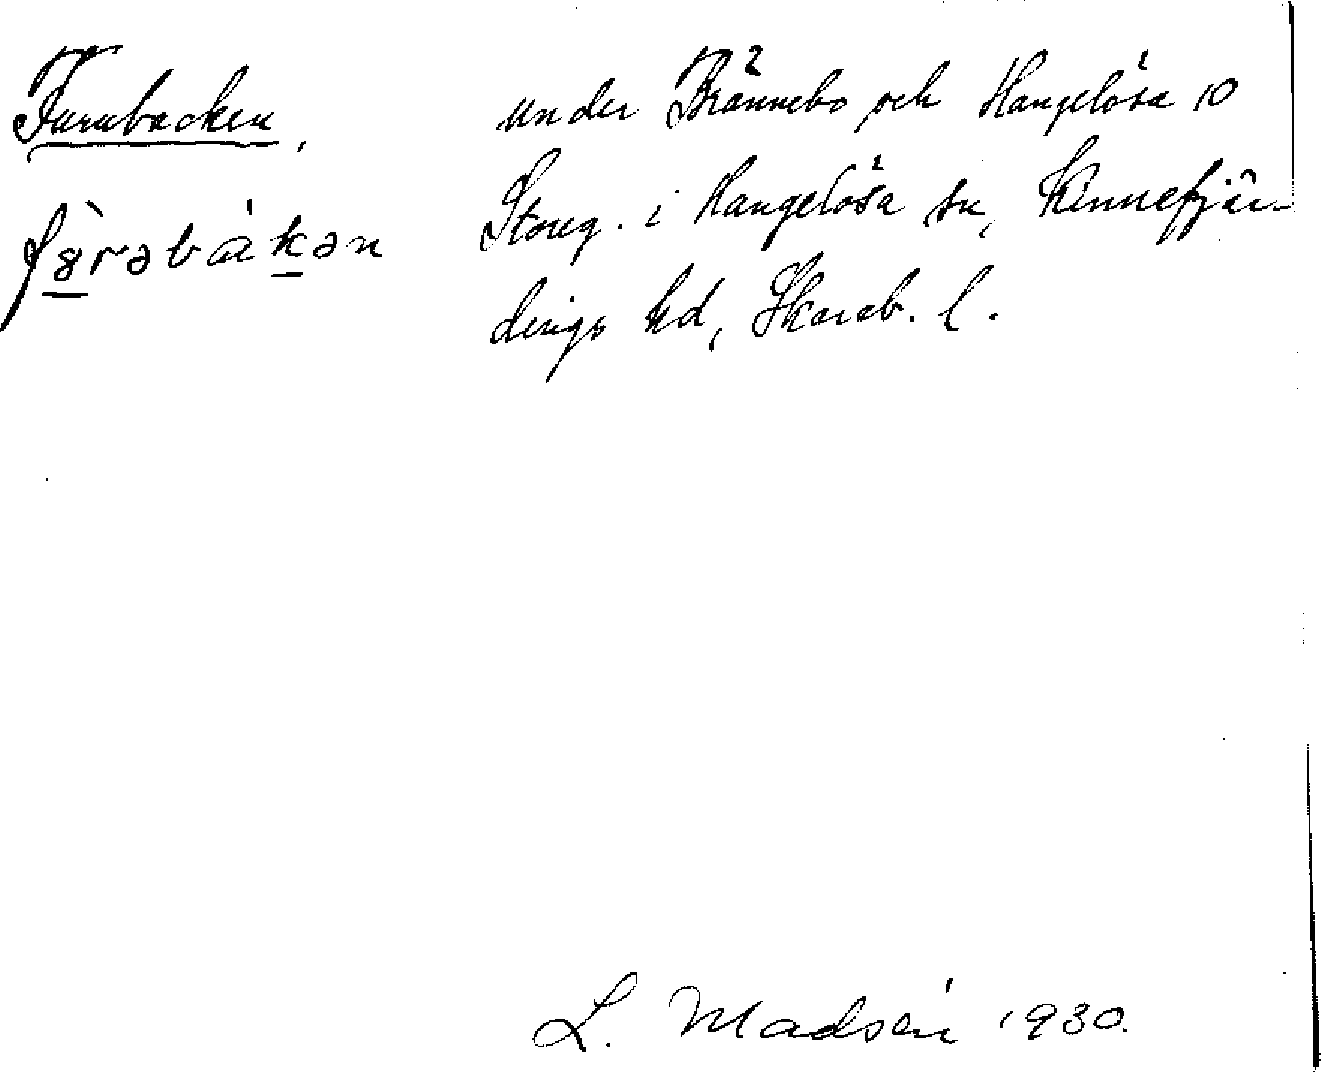 Furubacken, under Brännebo och Hangelösa 10
fɤ̀rəbákən Storeg. i Hangelösa sn, Kinnefjär-
dings hd, Skarab. l.
L. Madsén 1930.